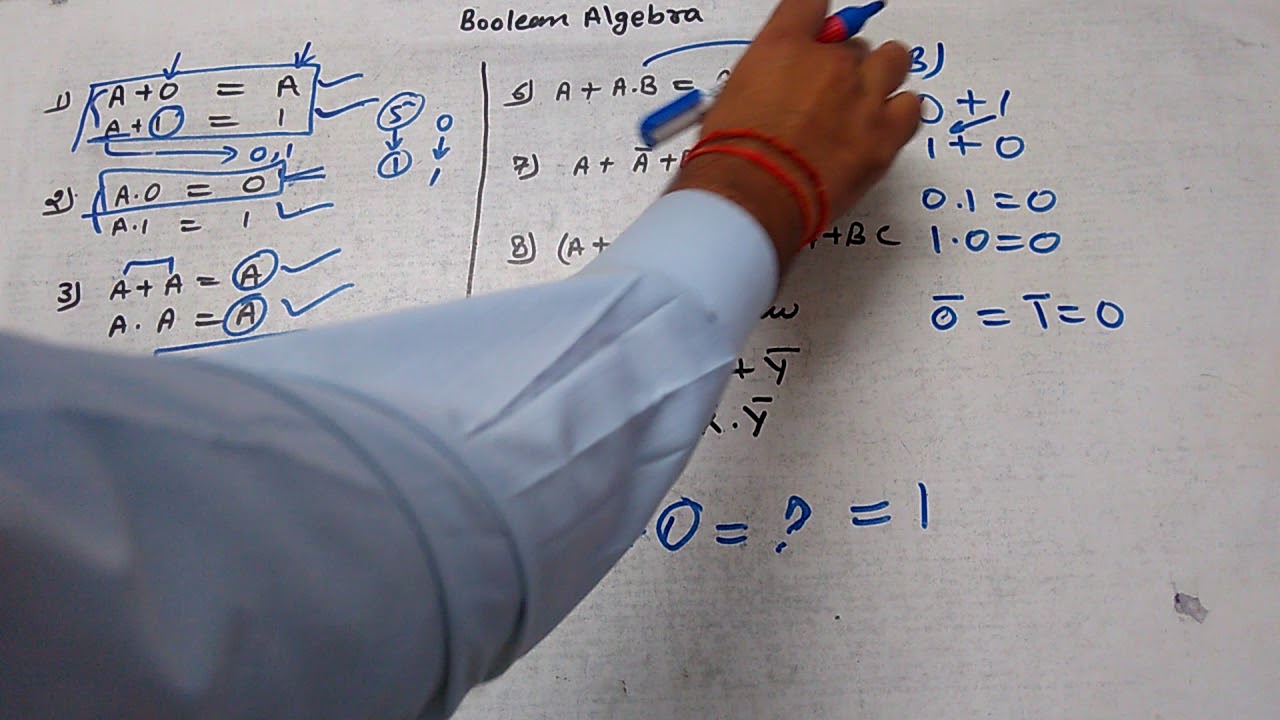 Boolean Algebra
1) A + 0 = A
A + 1 = 1
→ 0,1
5 0
↓ ↓
1 1
2) A.0 = 0
A.1 = 1
3) A + A = A
A . A = A
6) A + A.B =
7) A + Ā +
8) (A + + BC
+ Y̅
. Y̅
0 = ? = 1
3)
0 + 1
1 + 0
0.1 = 0
1.0 = 0
0̅ = 1̅ = 0